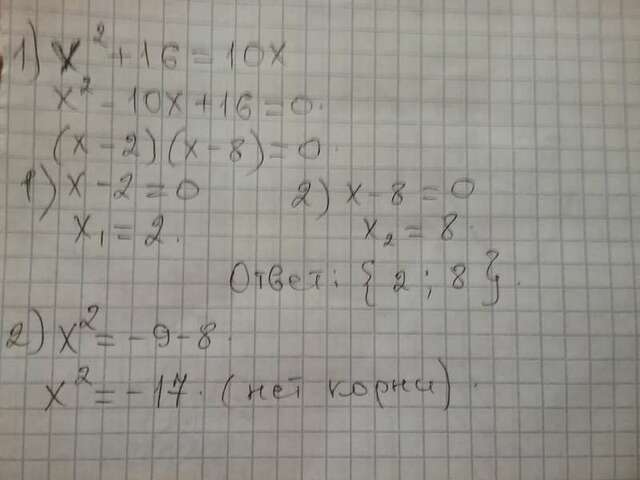 1) x² + 16 = 10x
x² - 10x + 16 = 0.
(x - 2)(x - 8) = 0.
1) x - 2 = 0 2) x - 8 = 0
x₁ = 2. x₂ = 8.
Ответ: {2; 8}.
2) x² = -9 - 8.
x² = -17. (нет корни).